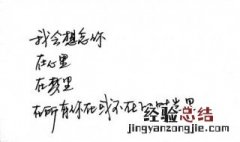 我会想念你
在心里
在梦里
在所有你在或不在的时光里
经验总结
jingyanzongjie.com